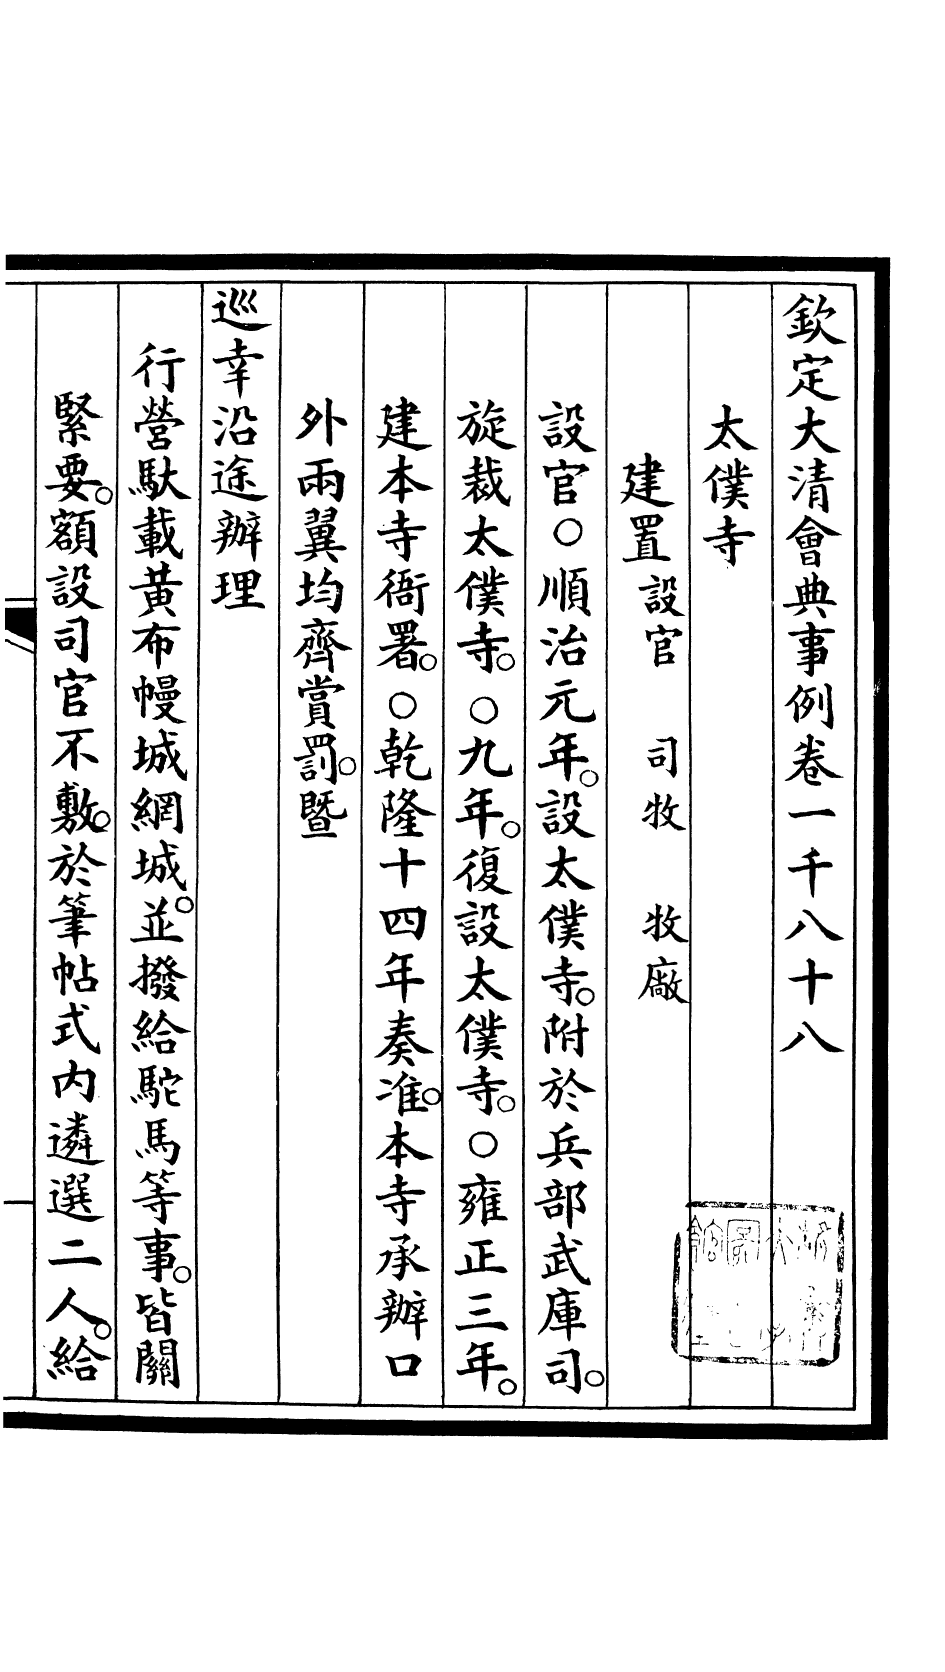 欽定大清會典事例卷一千八十八
太僕寺
建置 設官 司牧 牧廠
設官○順治元年。設太僕寺。附於兵部武庫司。
旋裁太僕寺。○九年。復設太僕寺。○雍正三年。
建本寺衙署。○乾隆十四年奏准。本寺承辦口
外兩翼均齊賞罰。暨
巡幸沿途辦理
行營馱載黃布幔城網城。並撥給駝馬等事。皆關
緊要。額設司官不敷。於筆帖式內遴選二人。給